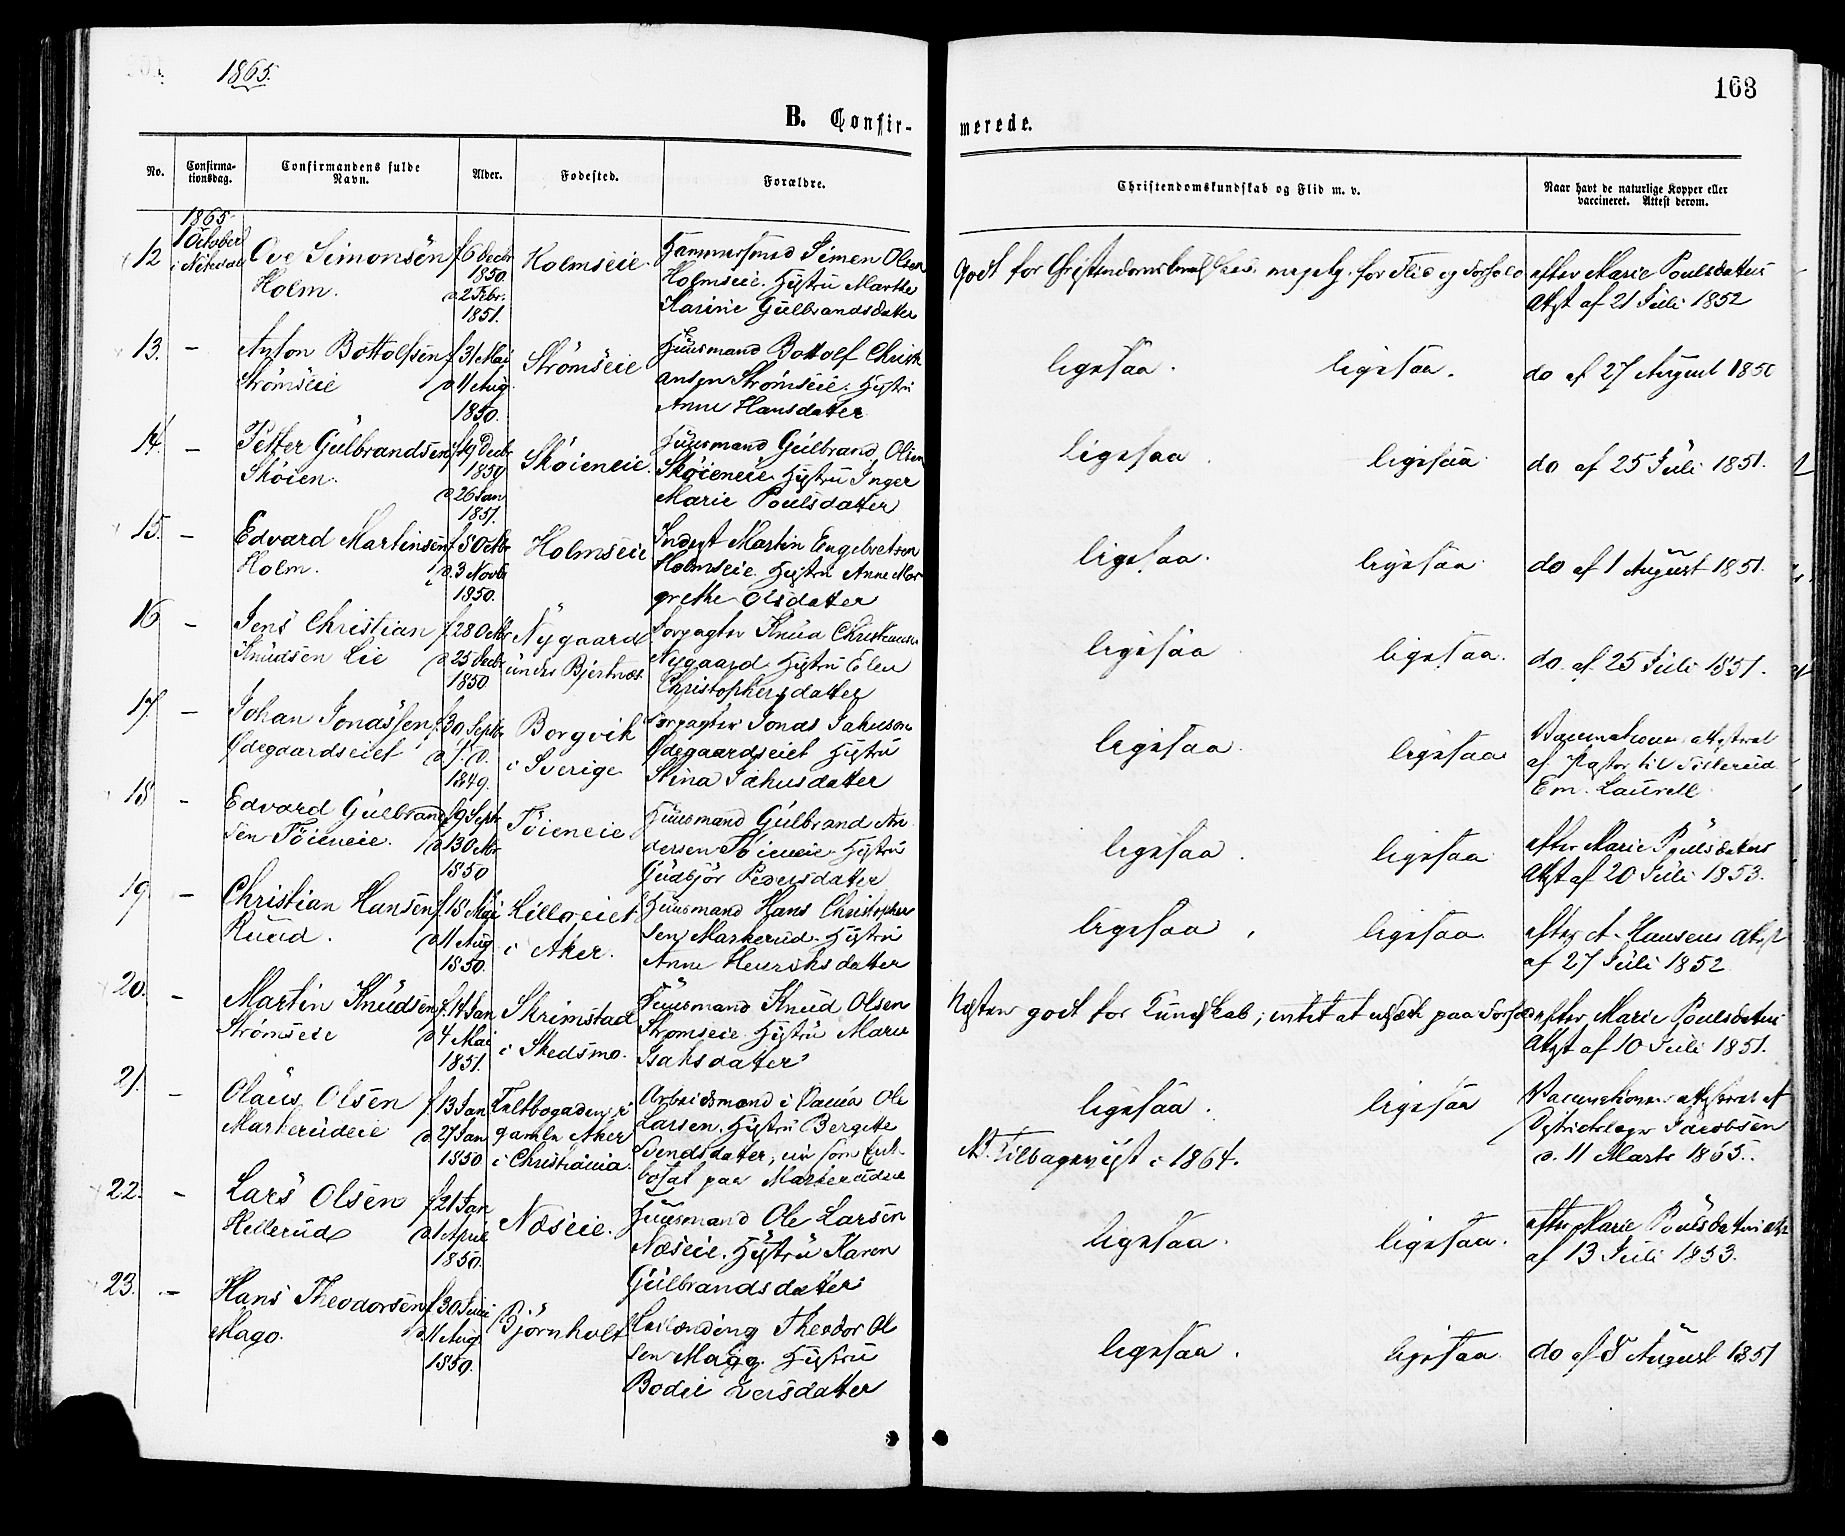 1865.
163
B. Confir-
merede.
No.
Confirma-
tionsdag.
Confirmandens fulde
Navn.
Alder.
Fødested.
Forældre.
Christendomskundskab og Flid m. v.
Naar havt de naturlige Kopper eller
vaccineret. Attest derom.
1865
1 October
i Nitedal
12
Ove Simonsen
Holm.
f 6 Decbr
1850.
d 2 Febr.
1851.
Holmseie.
Hammersmed Simen Olsen
Holmseie. Hustru Marthe
Karine Gulbrandsdatter
Godt for for Flid og Forhold
efter Marie Poulsdatters
Attst af 21 Juli 1852
13. –
Anton Bottolfsen
Strømseie
f 31 Mai
d 11 Aug.
1850.
Strømseie
Huusmand Bottolf Christi
ansen Strømseie. Hustru
Anne Hansdatter
ligesaa. ligesaa.
do af 27 August 1850
14. –
Petter Gulbrandsen
Skøien.
f 19 Decbr
1850
d 26 Jan
1851.
Skøieneie.
Huusmand Gulbrand Olsen
Skøieneie. Hustru Inger
Marie Poulsdatter
ligesaa. ligesaa
do af 25 Juli 1851.
15. –
Edvard Martinsen
Holm.
f 5 Octbr
d. 3 Novbr
1850.
Holmseie
Inderst Martin Engebretsen
Holmseie. Hustru Anne Mar
grethe Olsdatter
ligesaa. ligesaa.
do af 1 August 1851.
16 –
Jens Christian
Knudsen Lie
f 28 Octbr
d 25 Decbr
1850
Nygaard
under Bjertnæs
Forpagter Knud Christiansen
Nygaard Hustru Elen
Christophersdatter
ligesaa ligesaa.
do. af 25 Juli 1851.
17. –
Johan Jonassen
Ødegaardseiet
f. 30 Septbr
1849.
Borgvik
i Sverige
Forpagter Jonas Jahnson
Ødegaardseiet Hustru
Stina Jahnsdatter
ligesaa. ligesaa
Vaccinations attesteret
af Pastor til
Em. Laurell.
18 –
Edvard Gulbrand
sen Tøieneie.
f 9 Septbr
d 13 Octbr
1850
Tøieneie
Huusmand Gulbrand An
dersen Tøieneie. Hustru
Gudbjør Pedersdatter
ligesaa. ligesaa
efter Marie Poulsdatters
Attst af 20 Juli 1853.
19. –
Christian Hansen
Ruud.
f. 15 Mai
d 11 Aug
1850.
Lilloeiet
i Aker.
Huusmand Hans Christopher
sen Maskerud. Hustru
Anne Henriksdatter
ligesaa. ligesaa.
efter A. Hansens Attst
af 27 Juli 1852
20. –
Martin Knudsen
Strømseie
f. 14 Jan
d 4 Mai
1851.
Skrimstad
i Skedsmo.
Huusmand Knud Olsen
Strømseie. Hustru Maren
Isaksdatter
Næsten godt for Kundskab; intet at udsætte paa Forhold
efter Marie Poulsdatters
Attst af 10 Juli 1851.
21. –
Olaus Olsen
Maskerudeie
f 13 Jan
d 27 Jan
1850
i
gamle Aker
i Christiania.
Arbeidsmand i Vania Ole
Larsen. Hustru Bergitte
Svendsdatter, nu
bosat paa Maskerudeie
ligesaa. ligesaa
NB. Tilbagevist i 1864.
Vaccinationen attesteret af
Districtslæge Jacobsen
d. 11 Marts 1865.
22. –
Lars Olsen
Hellerud
f 21 Jan
d 1 April
1850.
Næseie.
Huusmand Ole Larsen
Næseie. Hustru Karen
Gulbrandsdatter
ligesaa. ligesaa.
efter Marie Poulsdatters Attst
af 13 Juli 1853.
23. –
Hans Theodorsen
Mago.
f 30 Juni
d. 11 Aug
1850.
Bjørnholt
Theodor Ol
sen Mago. Hustru
Bodil Larsdatter
ligesaa. ligesaa
do af 8 August 1851